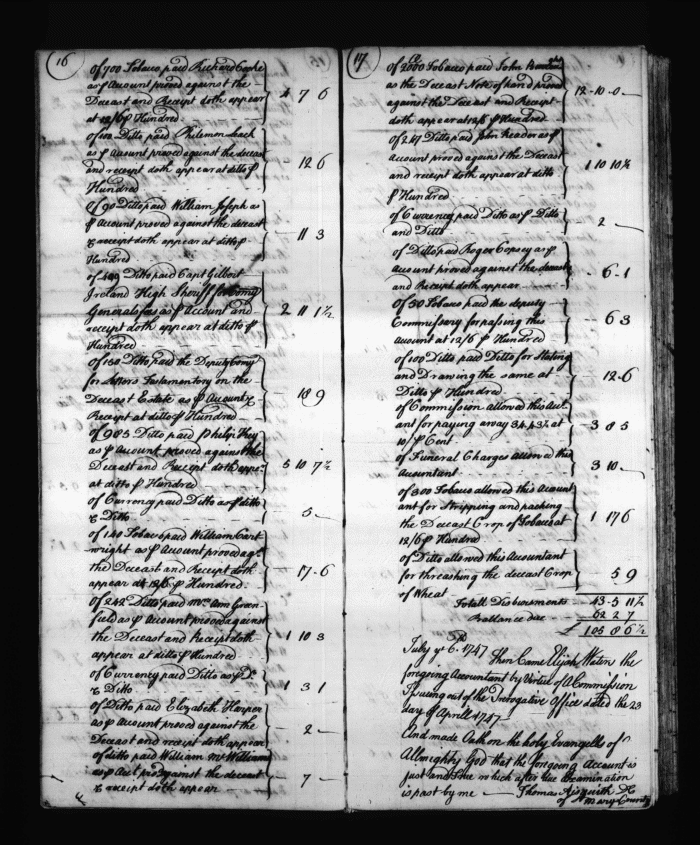 16
Of 700 Tobacco paid Richard Cooke
as ⅌ Account proved against the
Deceast and Receipt doth appear
at 12/6 ⅌ Hundred
4 7 6
Of 100 Ditto paid Philemon Leach
as ⅌ Account proved against the deceast
and receipt doth appear at ditto ⅌
Hundred
12 6
Of 90 Ditto paid William Joseph as
⅌ Account proved against the deceast
& receipt doth appear at ditto ⅌
Hundred
11 3
Of 409 Ditto paid Capt Gilbert
Ireland High Sheriff for
Generals fees as ⅌ Account and
receipt doth appear at ditto ⅌
Hundred
2 11 1½
Of 150 Ditto paid the Deputy Comy
for Letters Testamentory on the
Deceast Estate as ⅌ Account &
Receipt at ditto ⅌ Hundred
18 9
Of 985 Ditto paid Philip Key
as ⅌ Account proved against the
Deceast and Receipt doth appr
at ditto ⅌ Hundred
5 10 7½
Of Currency paid Ditto as ⅌ ditto
& Ditto
5
Of 140 Tobacco paid William Cart
wright as ⅌ Account proved agt
the Deceast and Receipt doth
appear at 12/6 ⅌ Hundred
17 6
Of 242 Ditto paid Mrs Ann Green
field as ⅌ Account proved against
the Deceast and Receipt doth
appear at ditto ⅌ Hundred
1 10 3
Of Currency paid Ditto as ⅌ Do
& Ditto
1 3 1
Of Ditto paid Elizabeth Harper
as ⅌ Account proved against the
Deceast and receipt doth appear
2
Of ditto paid William McWilliam
as ⅌ Act proved against the deceast
& receipt doth appear
7
17
Of 2000 Tobacco paid John
as the Deceast Note of hand proved
against the Deceast and Receipt
doth appear at 12/6 ⅌ Hundred
12 10 0
Of 247 Ditto paid John Reador as ⅌
Account proved against the Deceast
and receipt doth appear at ditto
⅌ Hundred
1 10 10½
Of Currency paid Ditto as ⅌ Ditto
and Ditto
2
Of Ditto paid Roger Copsey as ⅌
Account proved against the deceast
and Receipt doth appear
6 1
Of 50 Tobacco paid the deputy
Commissary for passing this
Account at 12/6 ⅌ Hundred
6 3
Of 100 Ditto paid Ditto for Stating
and Drawing the same at
Ditto ⅌ Hundred
12 6
Of Commission allowed this Act
ant for paying away at
10 ⅌ Cent
3 8 5
Of Funeral Charges allowed this
Accountant
3 10
Of 300 Tobacco allowed this Account
ant for Stripping and packing
the Deceast Crop of Tobacco at
12/6 ⅌ Hundred
1 17 6
Of Ditto allowed this Accountant
for threashing the deceast Crop
of Wheat
5 9
Totall Disbursments 43 5 11½
Ballance due 62 2 7
£ 105 8 6½
July ye 6th 1747
Then Came Elijah Waton the
foregoing Accountant by Virtue of A Commission
Issuing out of the Prerogative Office dated the 23
day of Aprill 1747
And made Oath on the holy Evangells of
Allmighty God that the foregoing Account is
just and true which after due Examination
is past by me Thomas Aisquith DC
of St Mary's County